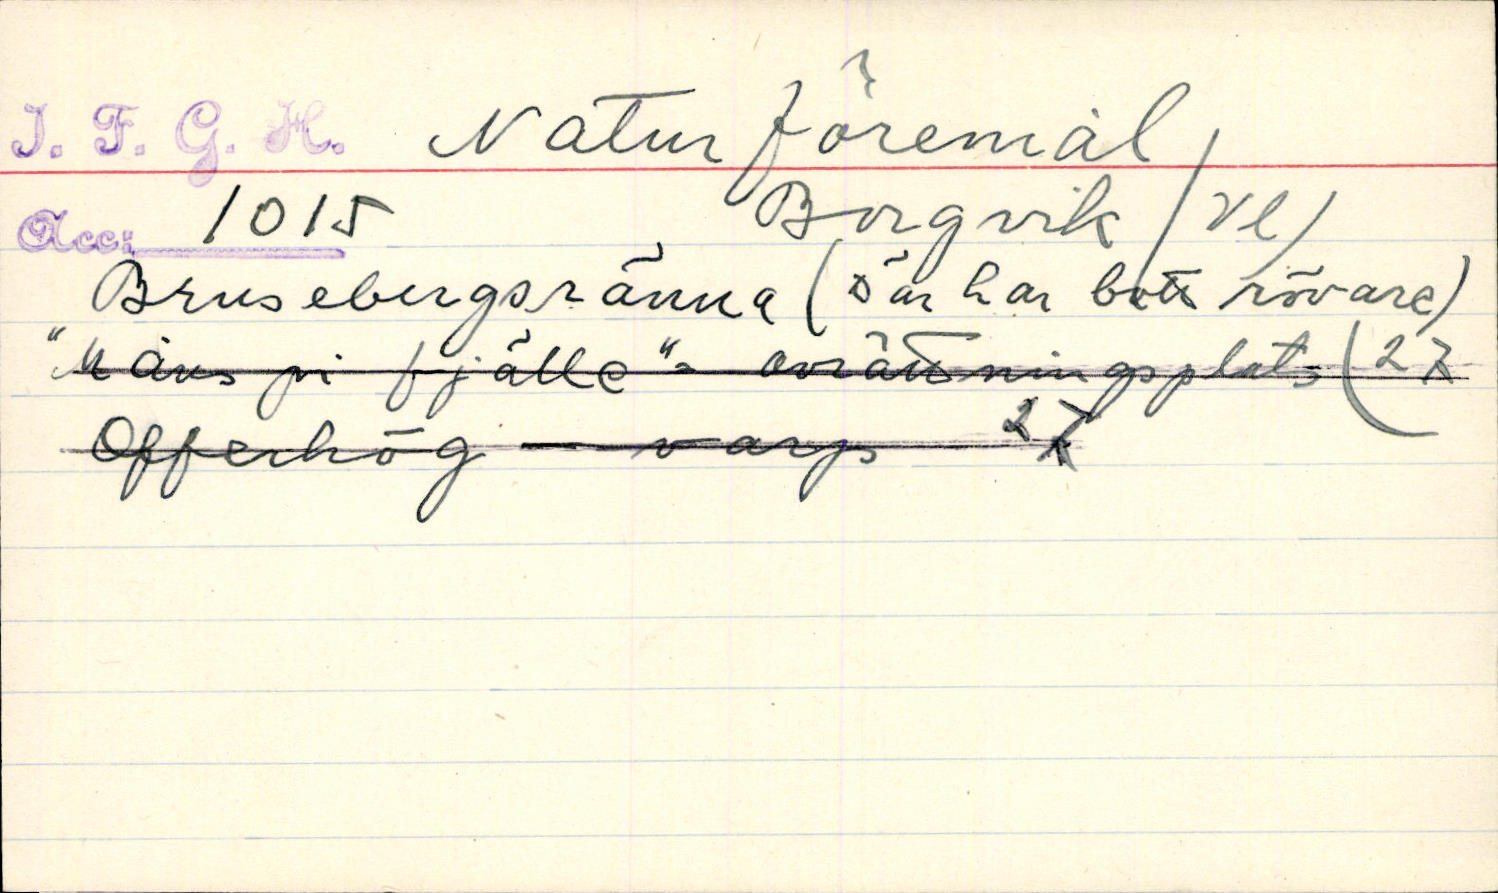 I. F. G. H. Naturföremål
Acc: 1015 Borgvik (Vl)
Brusebergsränna (där har bott rövare)
"Måns pi fjälle" - avrättningsplats (27
Offerhög — varps 27